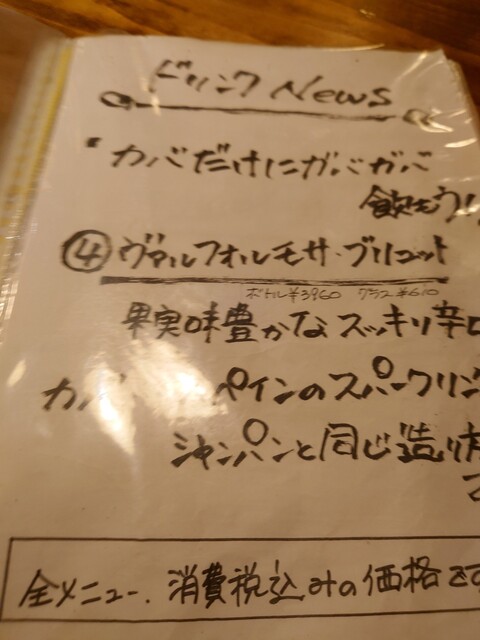 ドリンク News
"カバだけにガバガバ
飲もう
④ ヴァルフォルモサ・ブリュット
ボトル¥3960 グラス¥610
果実味豊かなスッキリ辛口
カバ ペインのスパークリング
シャンパンと同じ造り方
で
全メニュー、消費税込みの価格です